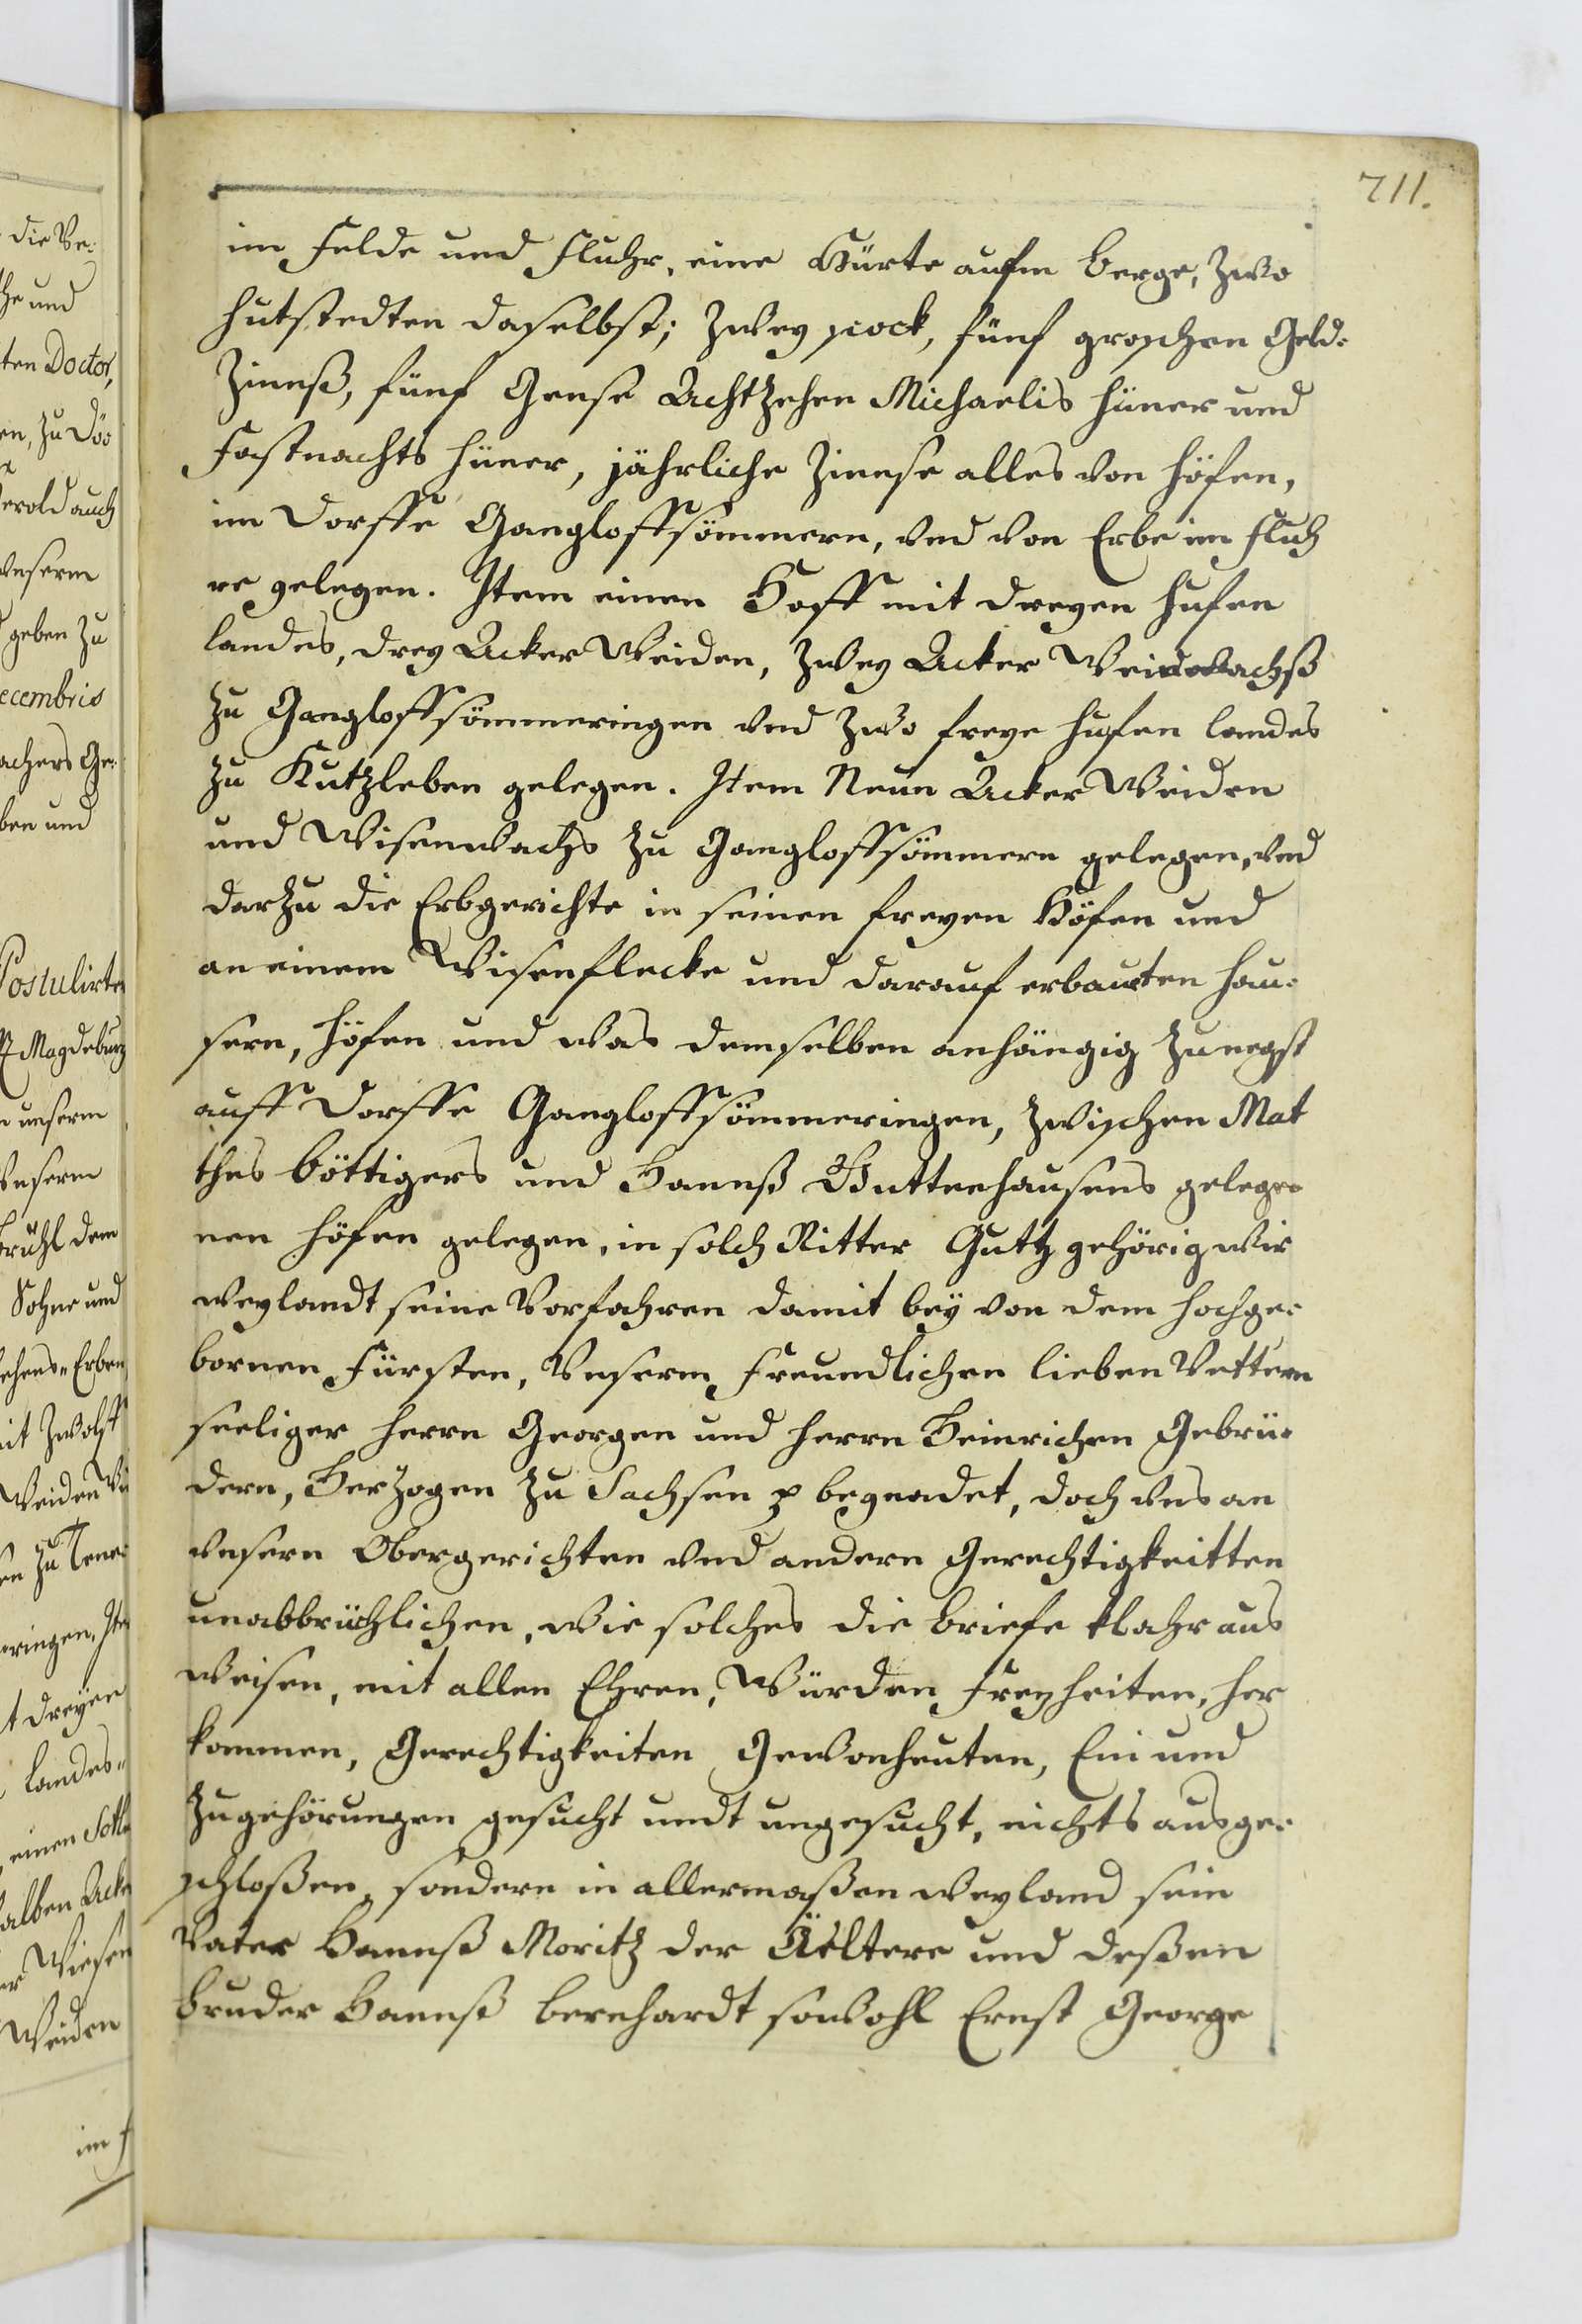 711.
im Felde und Fluhr, eine Hürte aufm Berge, zwo
hutstedten daselbst; zwey schock, fünf groschen Geld-
Zinnß, fünf Gense Achtzehen Michaelis hüner und
Fastnachts hüner, jährliche Zinnse alles von höfen,
im Dorffe Gangloffsömmern, vnd von Erbe im Fluh
re gelegen. Item einen Hoff mit dreyen hufen
landes, drey Acker Weiden, zwey Acker Weidewachß
zu Gangloffsömmeringen vnd zwo freye hufen landes
zu Kutzleben gelegen. Item Neun Acker Weiden
und Wisenwachs zu Gangloffsömmern gelegen, vnd
darzu die Erbgerichte in seinen freyen Höfen und
an einem Wisenflecke und darauf erbauten heu-
sern, höfen und was demselben anhängig zu negst
auff Dorffe Gangloffsömmeringen, zwischen Mat
thes Böttigers und Hannß Guttenhausens gelege-
nen höfen gelegen, in solch Ritter Guth gehörig wie
weylandt seine Vorfahren damit bey von dem hochge-
bornen Fürsten, Vnserm freundlichen lieben Vettern
seeliger herrn Georgen und herrn Heinrichen Gebrü-
dern, Herzogen zu Sachsen p begnadet, doch vns an
vnsern Obergerichten vnd andern Gerechtigkeitten
unabbrüchlichen, wie solches die briefe klahr aus
weisen, mit allen Ehren, Würden, Freyheiten, her
kommen, Gerechtigkeiten Gewonheuten, Ein und
zugehörungen gesucht undt ungesucht, nichts ausge-
schloßen, sondern in allermaßen weyland sein
Vater Hannß Moritz der Äeltere und deßen
bruder Hannß bernhardt sowohl Ernst George